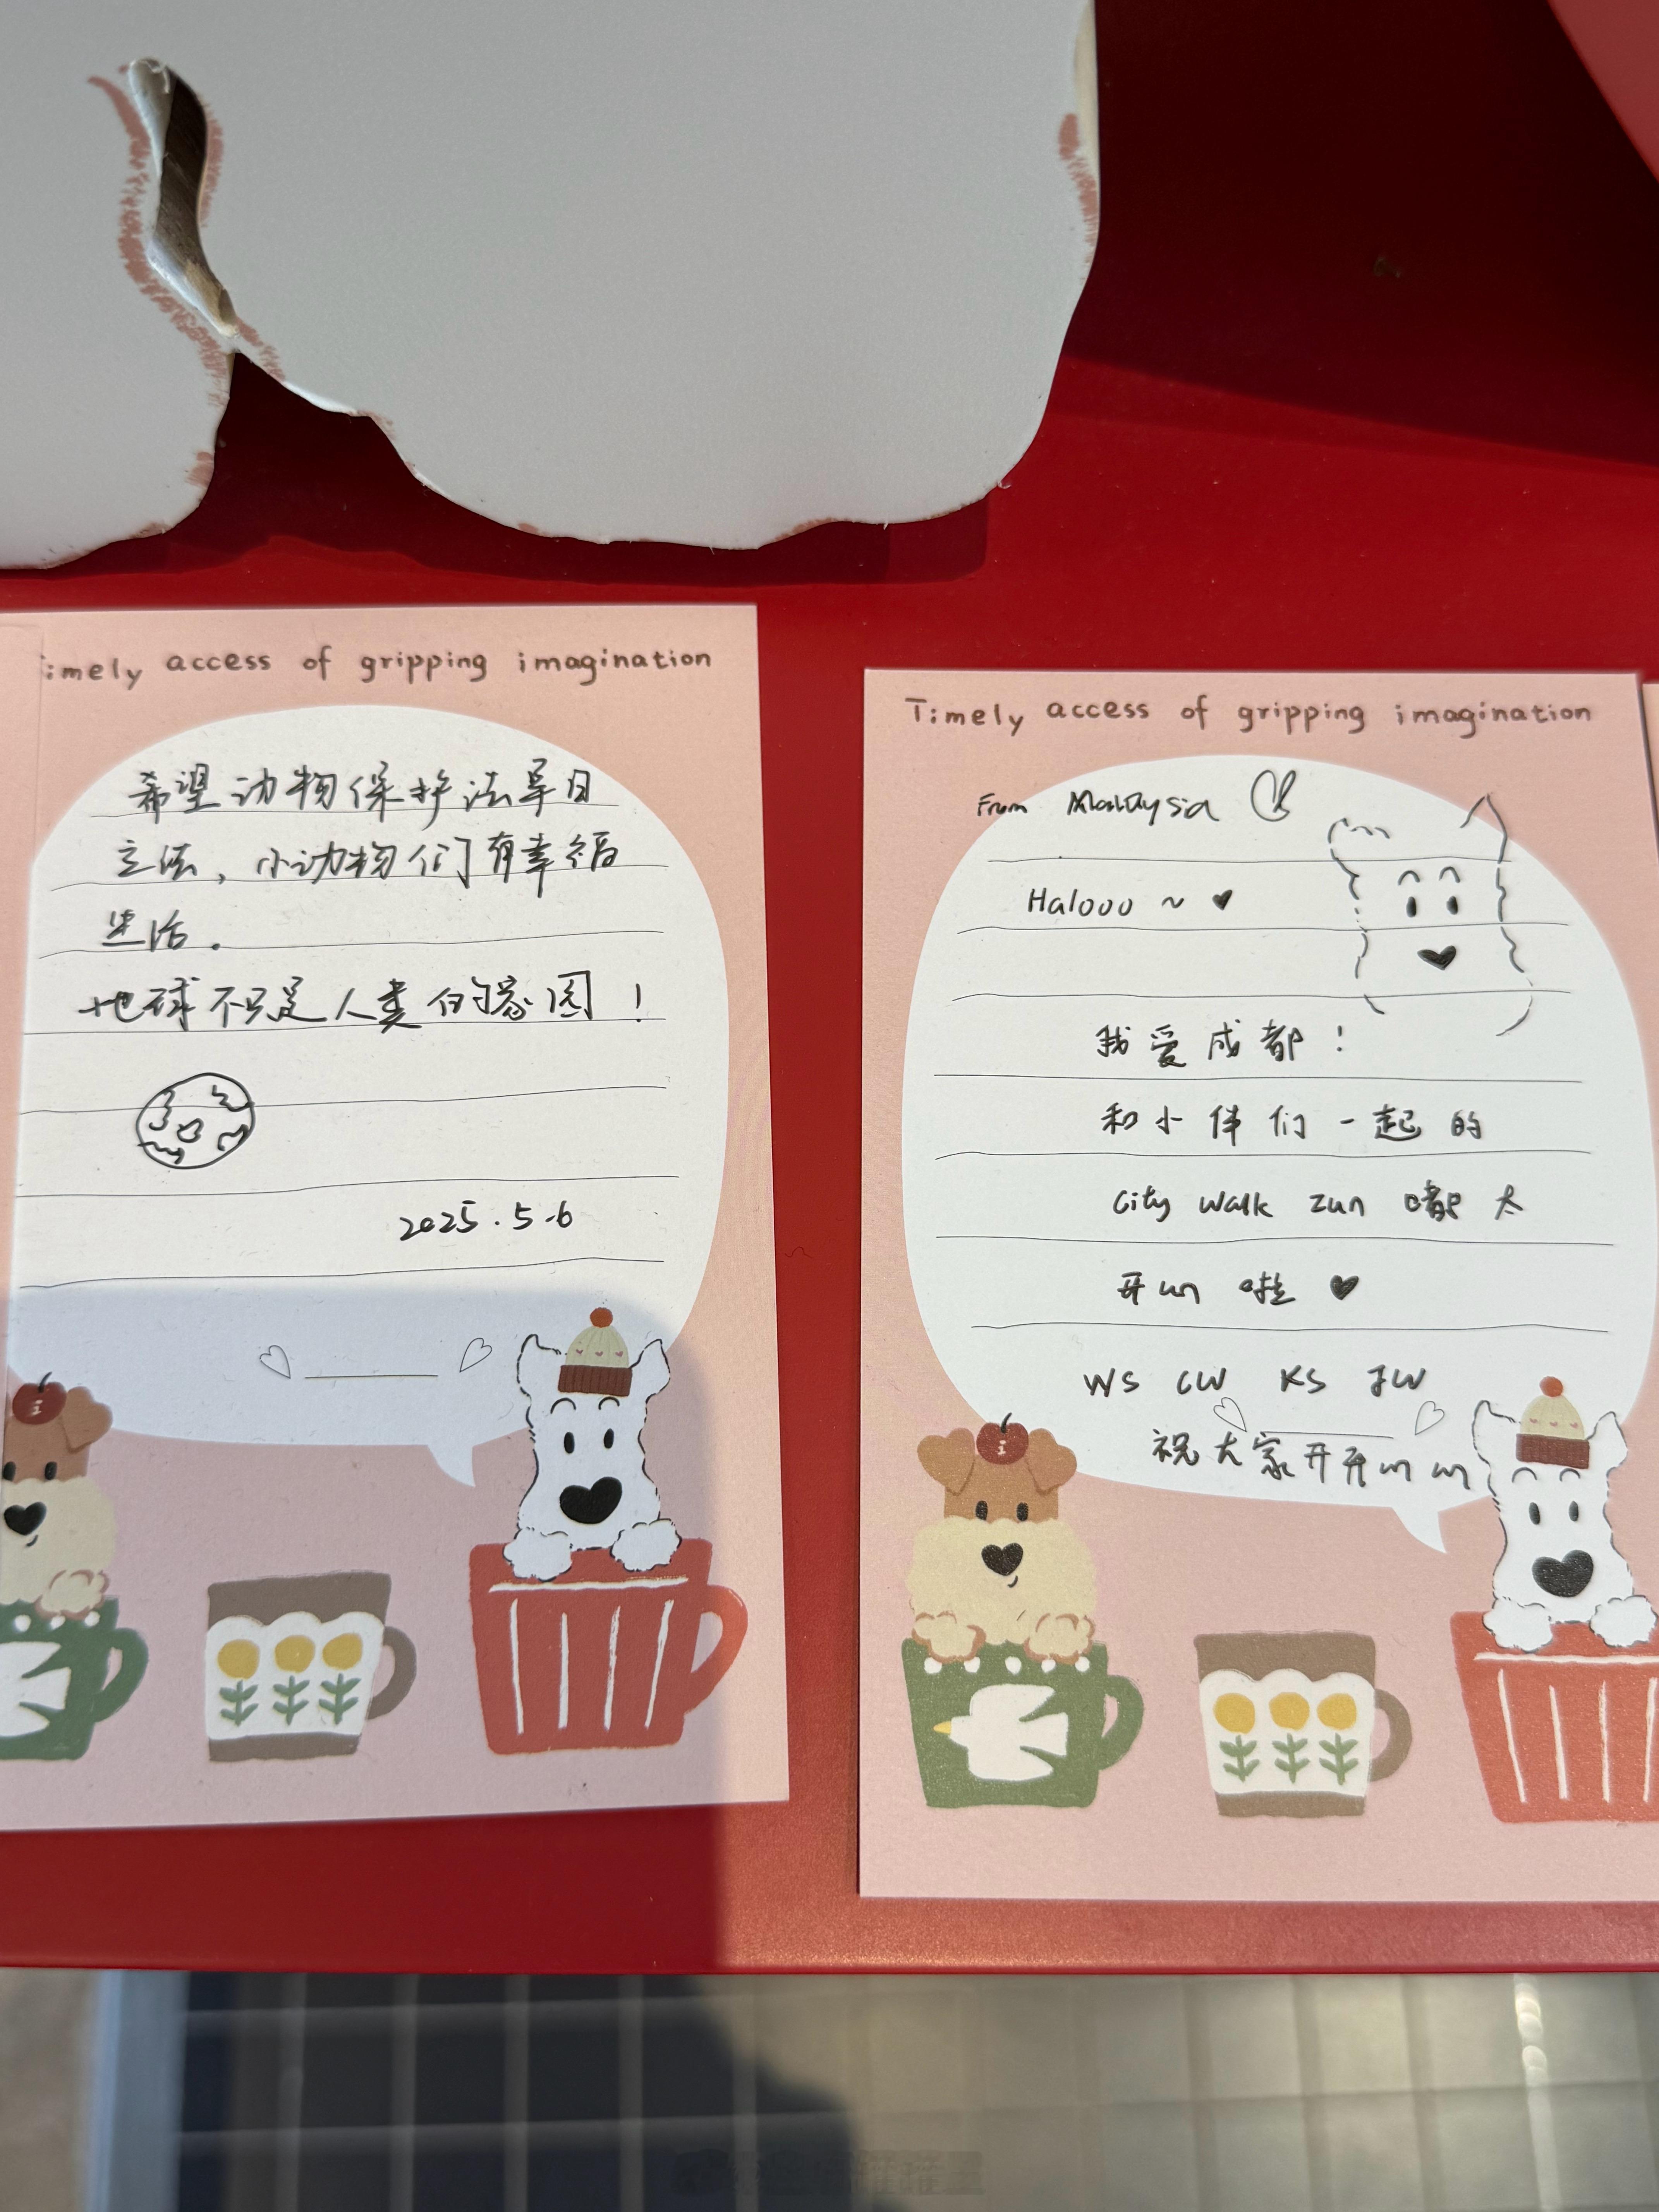 imely access of gripping imagination
希望动物保护法早日
立法，小动物们有幸福
生活.
地球不只是人类的家园！
2025.5.6
Timely access of gripping imagination
From Malaysia
Halooo ~ ♥
我爱成都！
和小伙们一起的
City Walk zun 嘟太
开un 啦 ♥
WS CW KS JW
祝大家开开un un